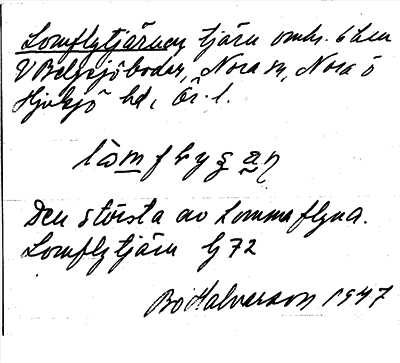 Lomflytjärnen tjärn omkr. 6 km
V Bergsjöbodar, Nora sn, Nora o
Hjulsjö hd, Ör. l.
Den största av Lommaflyna.
Lomflytjärn Gj 72
Bo Halvarson 1947